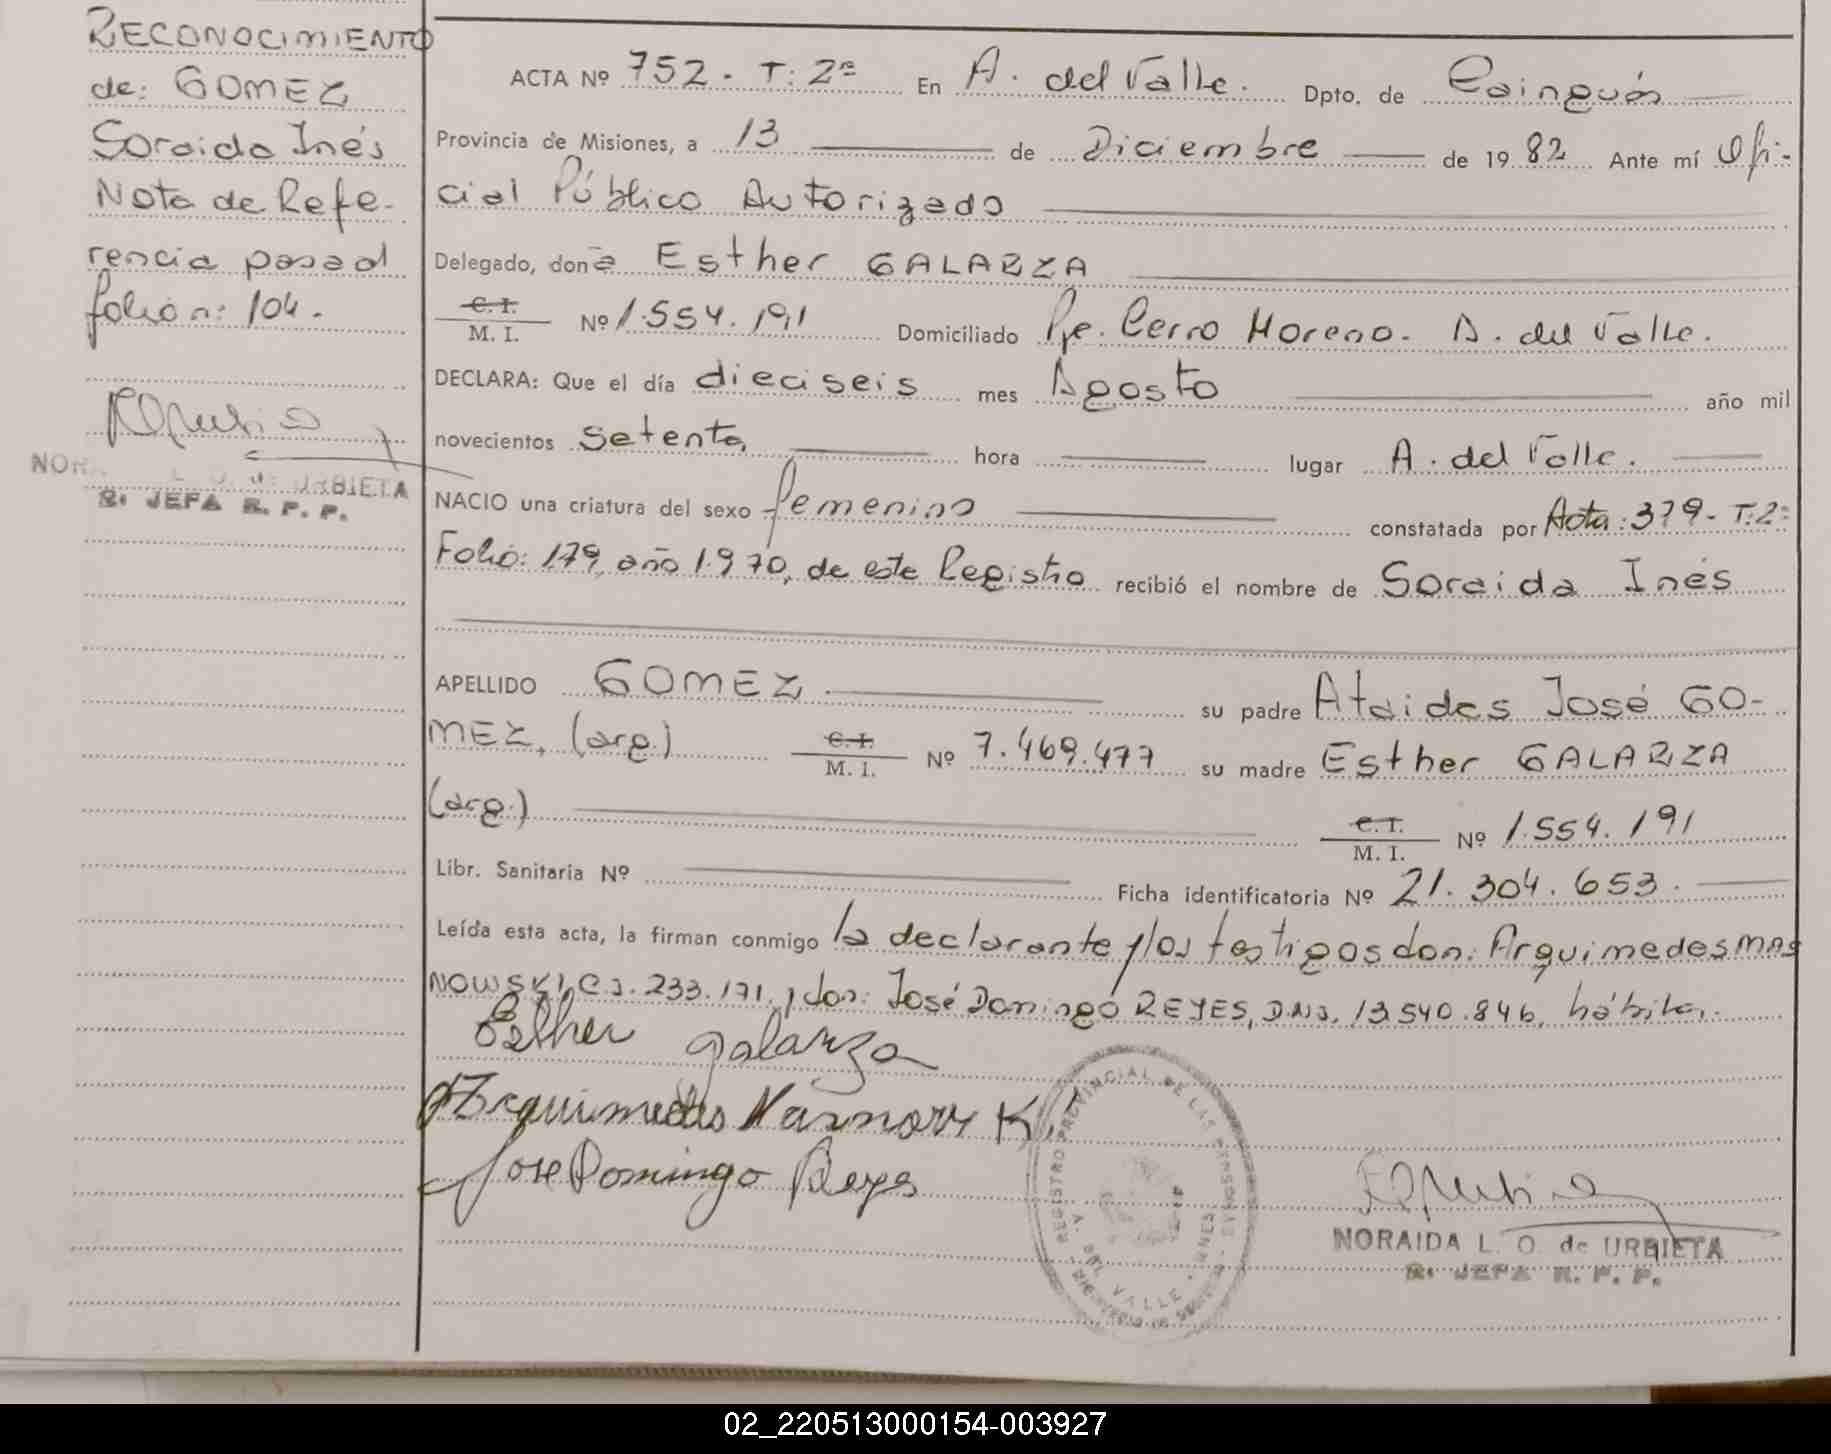 RECONOCIMIENTO
de: GOMEZ
Soraida Inés
Nota de Refe-
rencia pasad
folio n: 104.
NOR L. O. de URBIETA
JEFA R. P. P.
ACTA Nº 752 - T: 2º En A. del Valle. Dpto. de Cainguás
Provincia de Misiones, a 13 de Diciembre de 1982 Ante mí Ofi-
cial Público Autorizado
Delegado, don a Esther GALARZA
C. I.
M. I. Nº 1.554.191 Domiciliado Pje. Cerro Moreno - A. del Valle.
DECLARA: Que el día dieciseis mes Agosto año mil
novecientos setenta, hora lugar A. del Valle.
NACIO una criatura del sexo femenino constatada por Acta: 379 - T: 2º
Folio: 179, año 1.970, de este Registro recibió el nombre de Soraida Inés
APELLIDO GOMEZ su padre Ataides José GO-
MEZ, (arg.) C. I.
M. I. Nº 7.469.477 su madre Esther GALARZA
(arg.) C. I.
M. I. Nº 1.554.191
Libr. Sanitaria Nº Ficha identificatoria Nº 21.304.653.
Leída esta acta, la firman conmigo la declarante y los testigos don: Arquimedes MAS
NOWSKI, C.I. 233.171, y don: José Domingo REYES, D.N.I. 13.540.846, hábiles.
Esther Galarza
Arquimedes
Jose Domingo Reyes
REGISTRO PROVINCIAL DE LAS PERSONAS
A. DEL VALLE
NORAIDA L. O. de URBIETA
JEFA R. P. P.
02_220513000154-003927